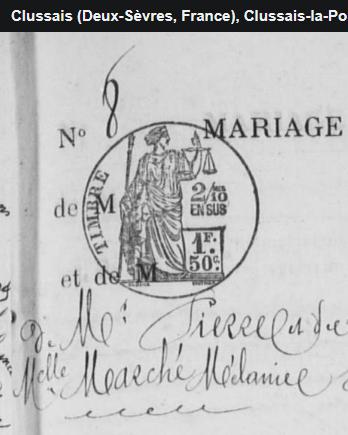 Clussais (Deux-Sèvres, France), Clussais-la-Po
N° 8 MARIAGE
de M
TIMBRE
2/10 EN SUS
1F. 50c.
et de M
de Mr Pierre
Melle Marché Mélanie